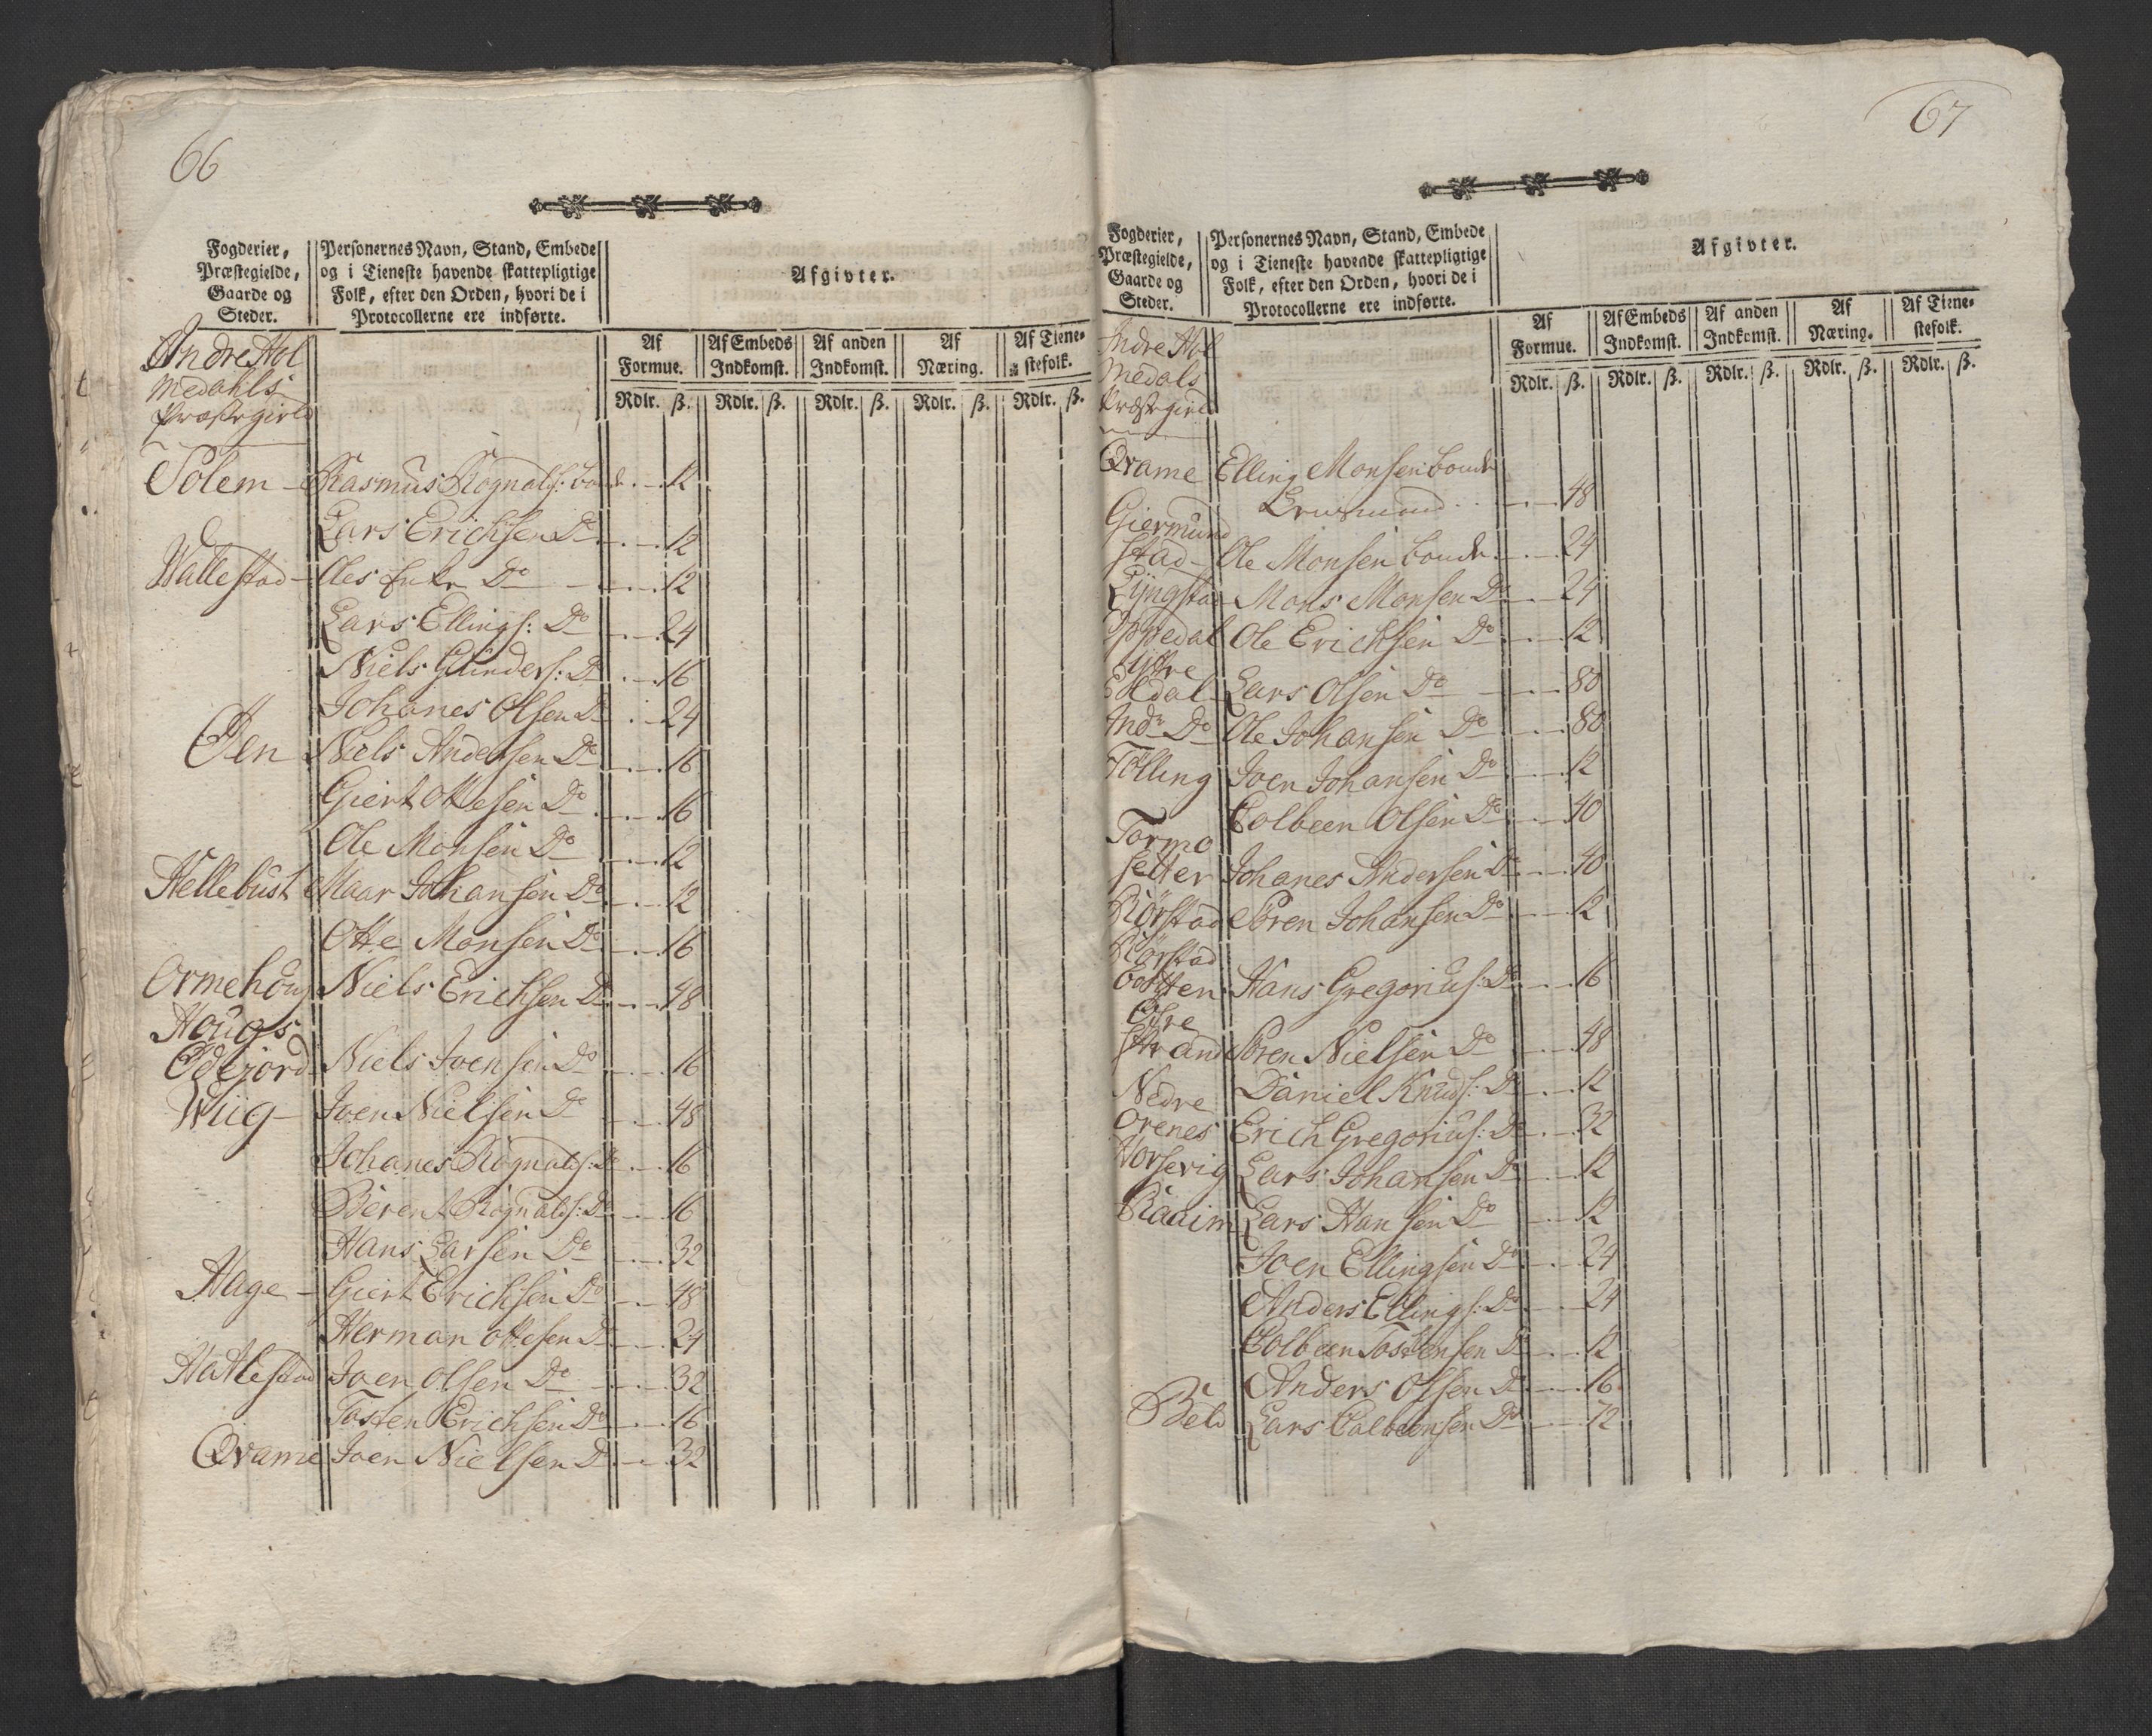 66
Fogderier,
Præstegielde,
Gaarde og
Steder.
Personernes Navn, Stand, Embede
og i Tieneste havende skattepligtige
Folk, efter den Orden, hvori de i
Protocollerne ere indførte.
Afgivter.
Af Formue. Af Embeds Indkomst. Af anden Indkomst. Af Næring. Af Tiene-stefolk.
Rdlr. ß. Rdlr. ß. Rdlr. ß. Rdlr. ß. Rdlr. ß.
Indre Hol
medahls
Præstegield
Solem - Rasmus Rognalds: bonde 12
Lars Erichsen Do 12
Wallestad - Oles Enke Do 12
Lars Ellings: Do 24
Niels Gunders: Do 16
Johanes Olsen Do 24
Oen Niels Andersen Do 16
Giert Ottesen Do 16
Ole Monsen Do 12
Hellebust Ivaar Johansen Do 12
Otte Monsen Do 16
Ormehoug Niels Erichsen Do 48
Hougs
Ødejord Niels Joensen Do 16
Wiig - Joen Nielsen Do 48
Johanes Rognalds: Do 16
Berent Rognalds: Do 16
Hans Larsen Do 32
Hage - Giert Erichsen Do 48
Herman Ottesen Do 24
Hatlestad Joen Olsen Do 32
Tosten Erichsen Do 16
Qvame Joen Nielsen Do 32
67
Fogderier,
Præstegielde,
Gaarde og
Steder.
Personernes Navn, Stand, Embede
og i Tieneste havende skattepligtige
Folk, efter den Orden, hvori de i
Protocollerne ere indførte.
Afgivter.
Af Formue. Af Embeds Indkomst. Af anden Indkomst. Af Næring. Af Tiene-stefolk.
Rdlr. ß. Rdlr. ß. Rdlr. ß. Rdlr. ß. Rdlr. ß.
Indre Hol
medals
Præstegield
Qvame Elling Monsen bonde
Lensmand 48
Giermund
stad - Ole Monsen bonde 24
Lyngstad Mons Monsen Do 24
Espedal Ole Erichsen Do 12
Yttre
Eldal Lars Olsen Do 80
Indr Do Ole Johansen Do 80
Tølling Joen Johansen Do 12
Colbeen Olsen Do 40
Tormo
setter Johanes Andersen Do 40
Rørstad Søren Johansen Do 12
Rørstad
botten Hans Gregorius: Do 16
Øfre
strand Søren Nielsen Do 48
Nedre Daniel Knuds: Do 12
Orenes Erich Gregorius: Do 32
Horsevig Lars Johansen Do 12
Riaaim Lars Hansen Do 12
Joen Ellingsen Do 24
Anders Ellings: Do 24
Colbeen Tostensen Do 12
Anders Olsen Do 16
Lars Colbeensen Do 72